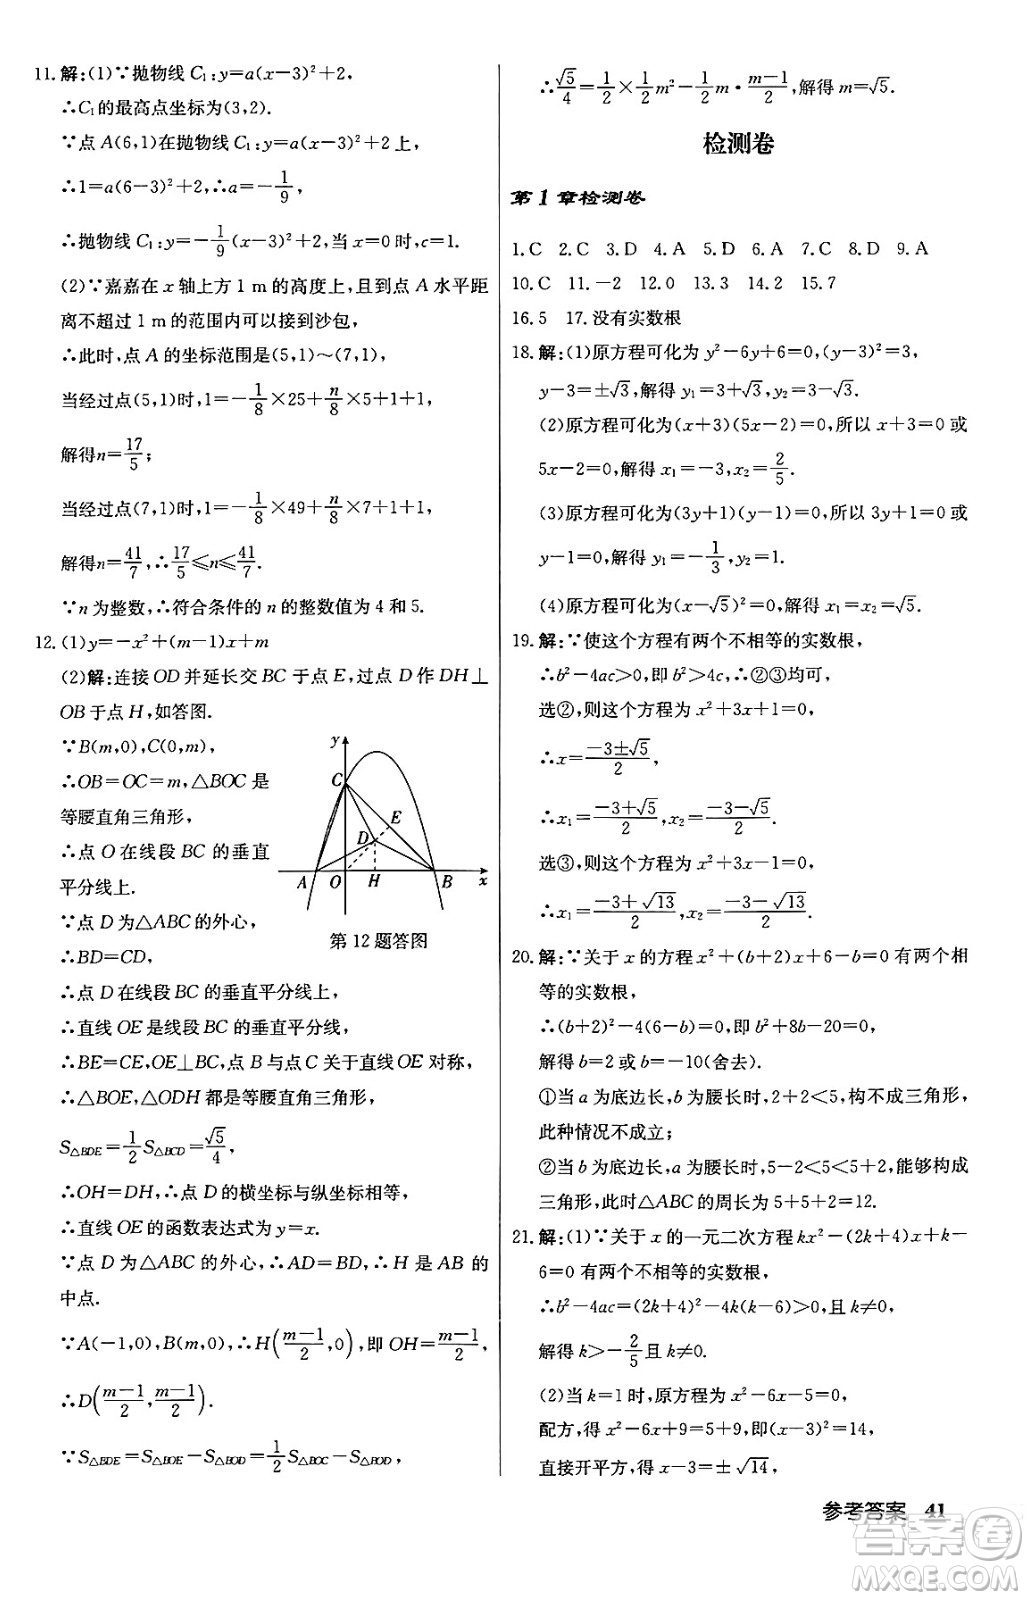 11. 解:(1)∵抛物线 C₁:y=a(x-3)²+2,
∴C₁的最高点坐标为(3,2).
∵点 A(6,1)在抛物线 C₁:y=a(x-3)²+2上,
∴1=a(6-3)²+2,∴a=-1/9,
∴抛物线 C₁:y=-1/9(x-3)²+2,当 x=0时,c=1.
(2)∵嘉嘉在 x 轴上方 1 m 的高度上,且到点 A 水平距
离不超过 1 m 的范围内可以接到沙包,
∴此时,点 A 的坐标范围是(5,1)~(7,1),
当经过点(5,1)时,1=-1/8×25+n/8×5+1+1,
解得n=17/5;
当经过点(7,1)时,1=-1/8×49+n/8×7+1+1,
解得n=41/7,∴17/5≤n≤41/7.
∵n 为整数,∴符合条件的 n 的整数值为 4 和 5.
12. (1)y=-x²+(m-1)x+m
(2)解:连接 OD 并延长交 BC 于点 E,过点 D 作 DH⊥
OB 于点 H,如答图.
∵B(m,0),C(0,m),
∴OB=OC=m,△BOC 是
等腰直角三角形,
∴点 O 在线段 BC 的垂直
平分线上.
∵点 D 为△ABC 的外心,
∴BD=CD,
y
C
E
D
A O H B x
第 12 题答图
∴点 D 在线段 BC 的垂直平分线上,
∴直线 OE 是线段 BC 的垂直平分线,
∴BE=CE,OE⊥BC,点 B 与点 C 关于直线 OE 对称,
∴△BOE,△ODH 都是等腰直角三角形,
S△BDE=1/2 S△BCD=√5/4,
∴OH=DH,∴点 D 的横坐标与纵坐标相等,
∴直线 OE 的函数表达式为 y=x.
∵点 D 为△ABC 的外心,∴AD=BD,∴H 是 AB 的
中点.
∵A(-1,0),B(m,0),∴H((m-1)/2,0),即 OH=(m-1)/2,
∴D((m-1)/2,(m-1)/2).
∵S△BDE=S△BOE-S△BOD=1/2 S△BOC-S△BOD,
∴√5/4=1/2×1/2 m²-1/2 m·(m-1)/2,解得 m=√5.
检测卷
第 1 章检测卷
1.C 2.C 3.D 4.A 5.D 6.A 7.C 8.D 9.A
10.C 11.-2 12.0 13.3 14.2 15.7
16.5 17.没有实数根
18. 解:(1)原方程可化为 y²-6y+6=0,(y-3)²=3,
y-3=±√3,解得 y₁=3+√3,y₂=3-√3.
(2)原方程可化为(x+3)(5x-2)=0,所以 x+3=0 或
5x-2=0,解得 x₁=-3,x₂=2/5.
(3)原方程可化为(3y+1)(y-1)=0,所以 3y+1=0 或
y-1=0,解得 y₁=-1/3,y₂=1.
(4)原方程可化为(x-√5)²=0,解得 x₁=x₂=√5.
19. 解:∵使这个方程有两个不相等的实数根,
∴b²-4ac>0,即 b²>4c,∴②③均可,
选②,则这个方程为 x²+3x+1=0,
∴x=(-3±√5)/2,
∴x₁=(-3+√5)/2,x₂=(-3-√5)/2.
选③,则这个方程为 x²+3x-1=0,
∴x₁=(-3+√13)/2,x₂=(-3-√13)/2.
20. 解:∵关于 x 的方程 x²+(b+2)x+6-b=0 有两个相
等的实数根,
∴(b+2)²-4(6-b)=0,即 b²+8b-20=0,
解得 b=2 或 b=-10(舍去).
①当 a 为底边长,b 为腰长时,2+2<5,构不成三角形,
此种情况不成立;
②当 b 为底边长,a 为腰长时,5-2<5<5+2,能够构成
三角形,此时△ABC 的周长为 5+5+2=12.
21. 解:(1)∵关于 x 的一元二次方程 kx²-(2k+4)x+k-
6=0 有两个不相等的实数根,
∴b²-4ac=(2k+4)²-4k(k-6)>0,且 k≠0,
解得 k>-2/5且 k≠0.
(2)当 k=1 时,原方程为 x²-6x-5=0,
配方,得 x²-6x+9=5+9,即(x-3)²=14,
直接开平方,得 x-3=±√14,
参考答案 41
答案圈
MXQE.COM